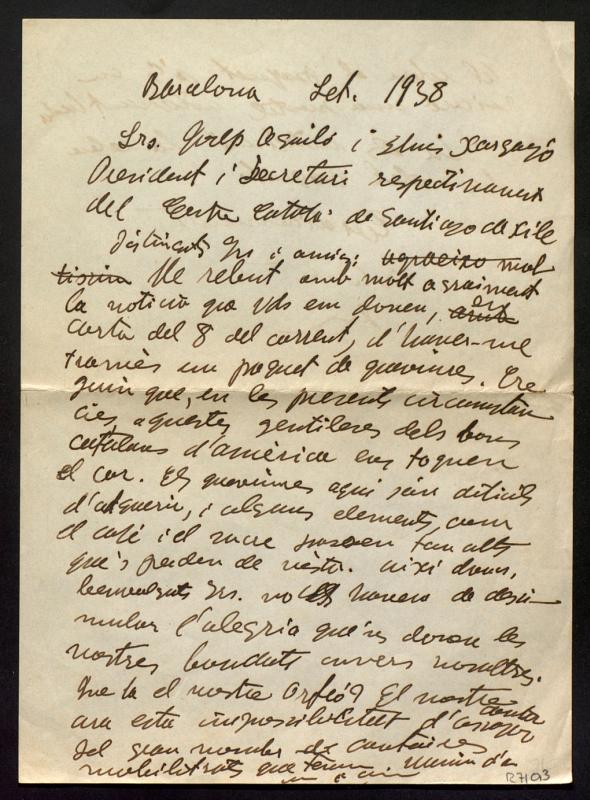 Barcelona Set. 1938
Srs. Josep Aguiló i Lluis
President i Secretari respectivament
del Centre Català de Santiago de Xile
Distingits Srs i amics: agraeixo molt
He rebut amb molt agraiment
la noticia que Vds em donen, en
carta del 8 del corrent, d'haver-me
tramès un paquet de queviures. Cre
guin que, en les presents circumstàn
cies, aquestes gentileses dels bons
catalans d'amèrica ens toquen
el cor. Els queviures aquí són difícils
d'adquirir, i alguns elements, com
el cafè i el sucre van tan alts
que's perden de vista. Així doncs,
benvolguts Srs. no els haveu de dissi-
mular l'alegria que'ns donen les
vostres bondats envers nosaltres.
Que fa el nostre Orfeó? El nostre
ara està impossibilitat d'assajar
del gran nombre de cantaires
mobilitzats que tenim
R7103